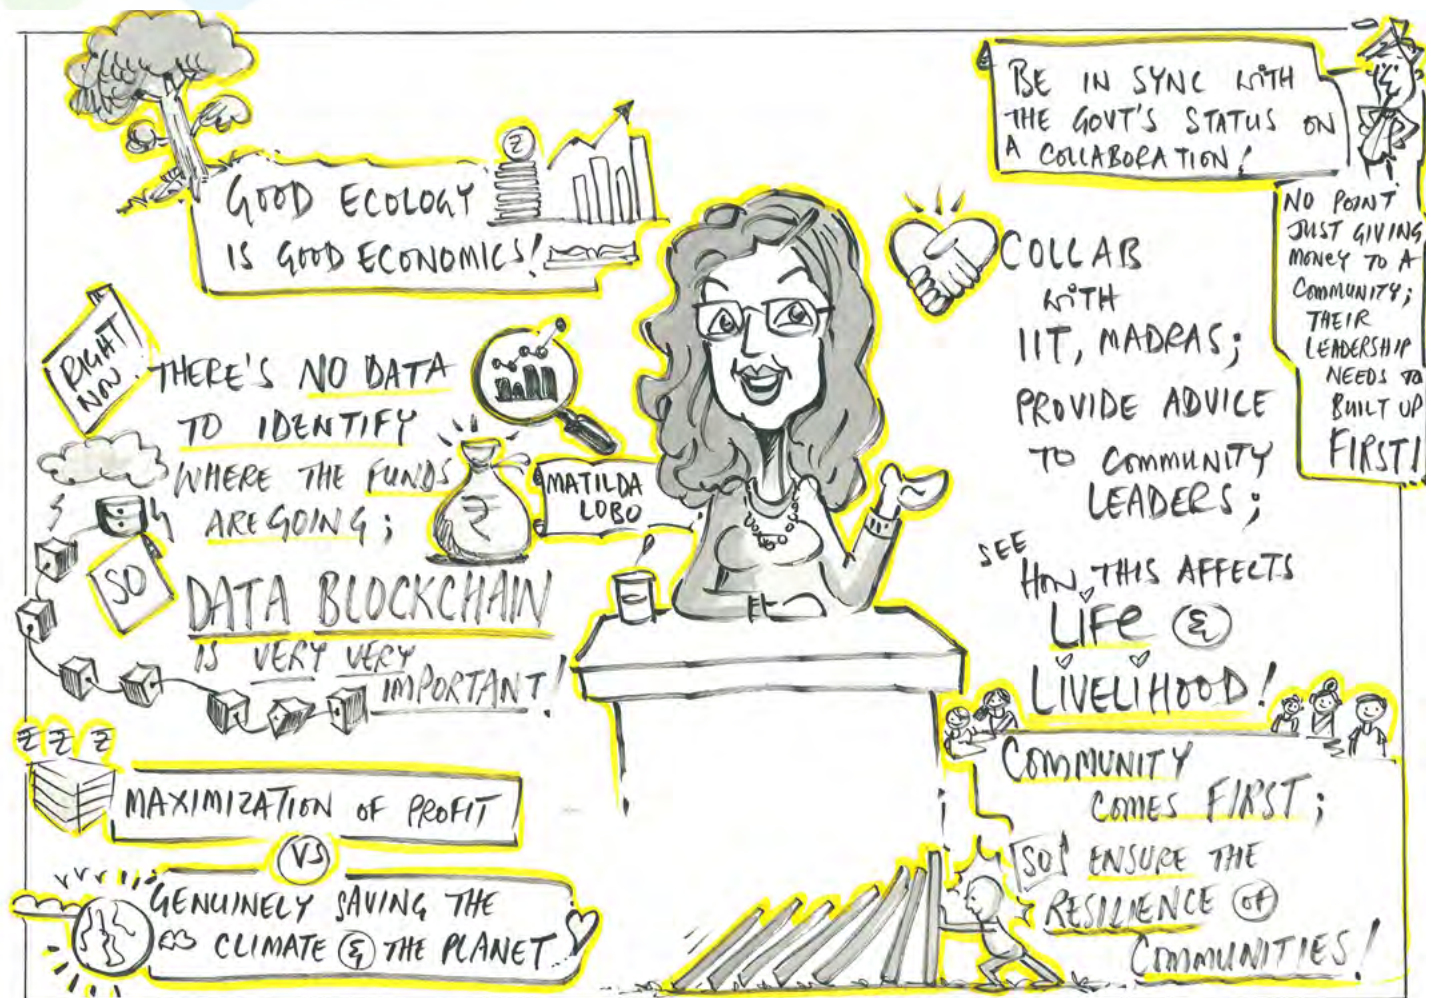 GOOD ECOLOGY
IS GOOD ECONOMICS!
RIGHT
NOW!
THERE'S NO DATA
TO IDENTIFY
WHERE THE FUNDS
ARE GOING;
₹
SO
DATA BLOCKCHAIN
IS VERY VERY
IMPORTANT!
₹ ₹ ₹
MAXIMIZATION OF PROFIT
VS
GENUINELY SAVING THE
CLIMATE & THE PLANET
MATILDA
LOBO
BE IN SYNC WITH
THE GOVT'S STATUS ON
A COLLABORATION!
NO POINT
JUST GIVING
MONEY TO A
COMMUNITY;
THEIR
LEADERSHIP
NEEDS TO
BUILT UP
FIRST!
COLLAB
WITH
IIT, MADRAS;
PROVIDE ADVICE
TO COMMUNITY
LEADERS;
SEE
HOW THIS AFFECTS
LIFE &
LIVELIHOOD!
COMMUNITY
COMES FIRST;
SO ENSURE THE
RESILIENCE OF
COMMUNITIES!